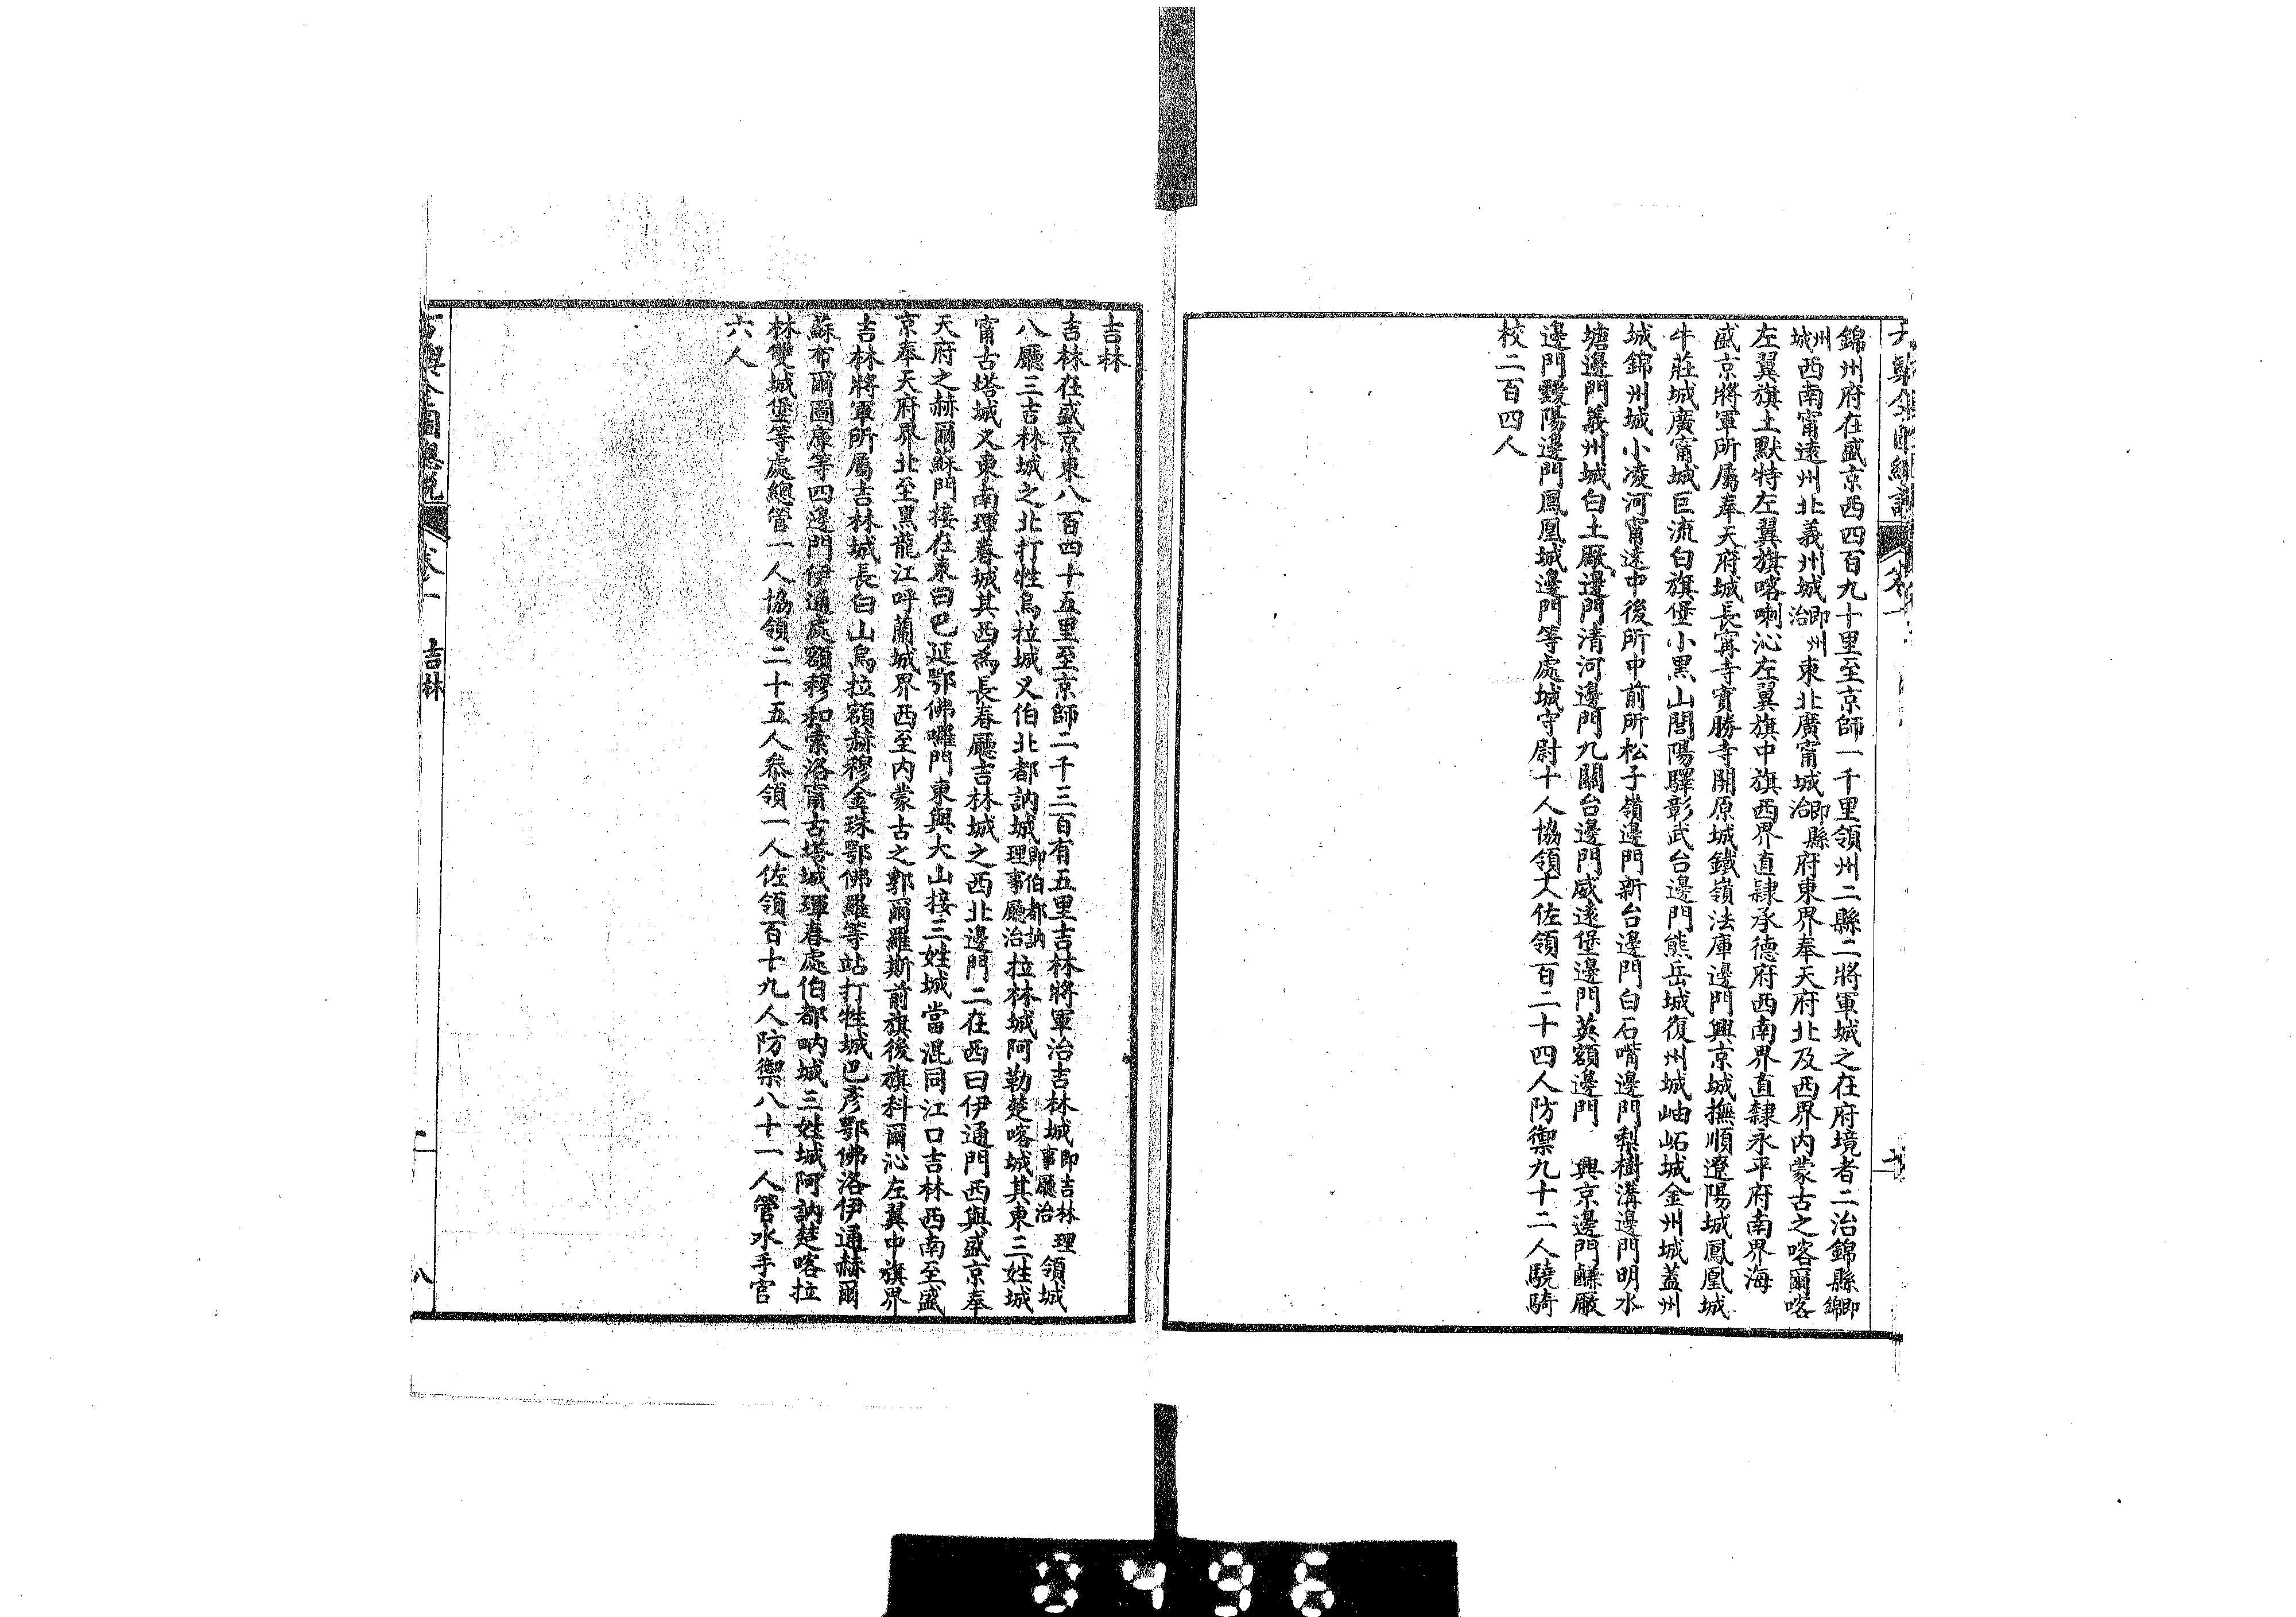 錦州府在盛京西四百九十里至京師一千里領州二縣二將軍城之在府境者二治錦縣即錦
州城西南甯遠州北義州城即州治東北廣甯城即縣治府東界奉天府北及西界內蒙古之喀爾喀
左翼旗土默特左翼旗喀喇沁左翼旗中旗西界直隸承德府西南界直隸永平府南界海
盛京將軍所屬奉天府城長甯寺實勝寺開原城鐵嶺法庫邊門興京城撫順遼陽城鳳凰城
牛莊城廣甯城巨流白旗堡小黑山閭陽驛彰武台邊門熊岳城復州城岫岩城金州城蓋州
城錦州城小凌河甯遠中後所中前所松子嶺邊門新台邊門白石嘴邊門梨樹溝邊門明水
塘邊門義州城白土厰邊門清河邊門九關台邊門威遠堡邊門英額邊門興京邊門鹻厰
邊門靉陽邊門鳳凰城邊門等處城守尉十人協領大佐領百二十四人防禦九十二人驍騎
校二百四人
吉林
吉林在盛京東八百四十五里至京師二千三百有五里吉林將軍治吉林城即吉林理事廳治領城
八廳三吉林城之北打牲烏拉城又伯北都訥城即伯都訥理事廳治拉林城阿勒楚喀城其東三姓城
甯古塔城又東南琿春城其西爲長春廳吉林城之西北邊門二在西曰伊通門西與盛京奉
天府之赫爾蘇門接在東曰巴延鄂佛囉門東與大山接三姓城當混同江口吉林西南至盛
京奉天府界北至黑龍江呼蘭城界西至內蒙古之郭爾羅斯前旗後旗科爾沁左翼中旗界
吉林將軍所屬吉林城長白山烏拉額赫穆金珠鄂佛羅等站打牲城巴彥鄂佛洛伊通赫爾
蘇布爾圖庫等四邊門伊通處額穆和索洛甯古塔城琿春處伯都吶城三姓城阿訥楚喀拉
林雙城堡等處總管一人協領二十五人叅領一人佐領百十九人防禦八十一人管水手官
六人
卷一 吉林
八
0496